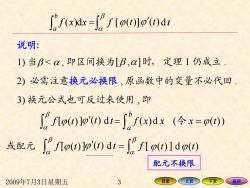 ∫_a^b f(x)dx = ∫_α^β f[φ(t)]φ′(t)dt
说明:
1) 当β < α, 即区间换为[β, α]时, 定理 1 仍成立 .
2) 必需注意换元必换限 , 原函数中的变量不必代回 .
3) 换元公式也可反过来使用 , 即
∫_α^β f[φ(t)]φ′(t)dt = ∫_a^b f(x)dx (令 x = φ(t))
或配元 ∫_α^β f[φ(t)]φ′(t)dt = ∫_α^β f[φ(t)]dφ(t)
配元不换限
2009年7月3日星期五 3